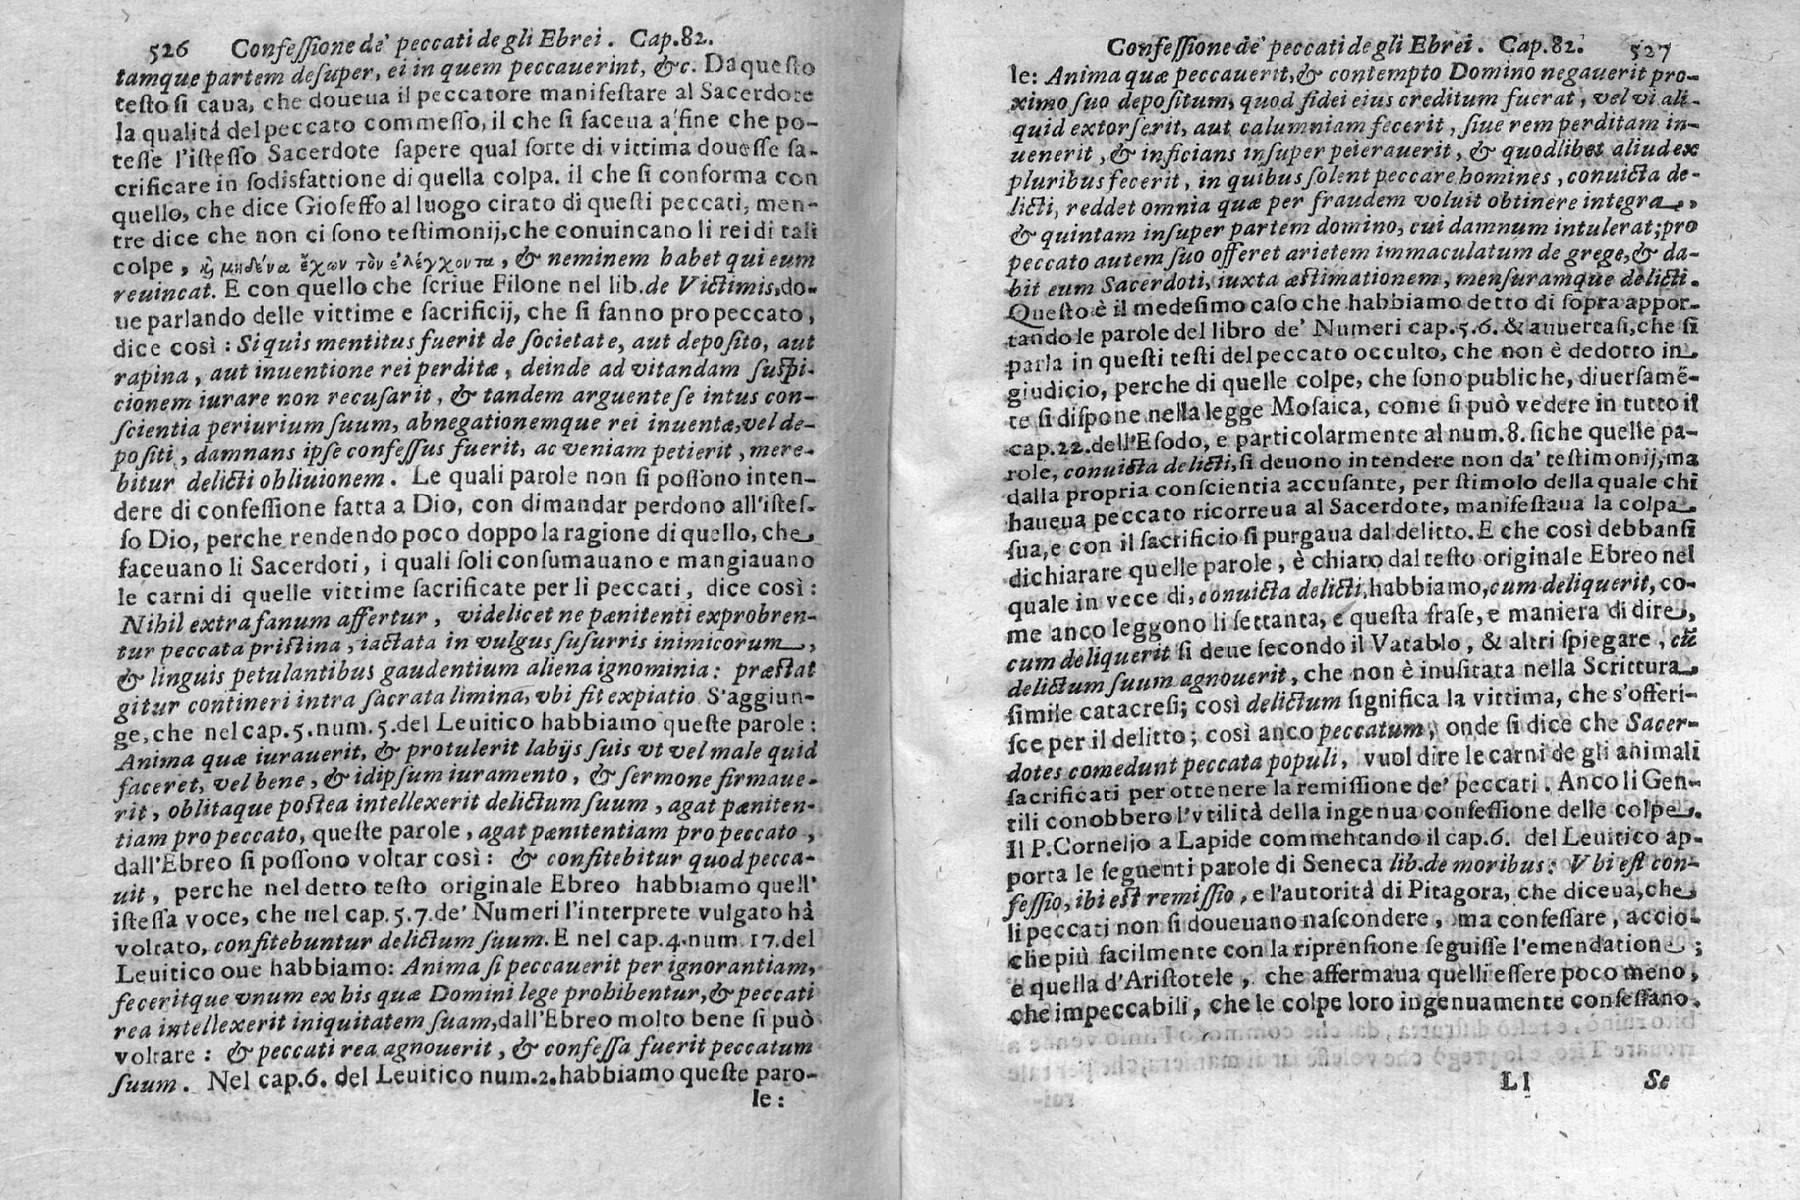 526 Confeſſione de' peccati degli Ebrei. Cap.82.
tamque partem deſuper, ei in quem peccauerint, &c. Da queſto
teſto ſi caua, che doueua il peccatore manifeſtare al Sacerdote
la qualitá del peccato commeſſo, il che ſi faceua a' fine che po-
teſſe l'iſteſſo Sacerdote ſapere qual ſorte di vittima doueſſe ſa-
crificare in ſodisfattione di quella colpa. il che ſi conforma con
quello, che dice Gioſeffo al luogo citato di queſti peccati, men-
tre dice che non ci ſono teſtimonij, che conuincano li rei di tali
colpe, ϗ μηδένα ἔχων τὸν ἐλέγχοντα, & neminem habet qui eum
reuincat. E con quello che ſcriue Filone nel lib. de Victimis, do-
ue parlando delle vittime e ſacrificij, che ſi fanno pro peccato,
dice così: Si quis mentitus fuerit de ſocietate, aut depoſito, aut
rapina, aut inuentione rei perditæ, deinde ad vitandam ſuſpi-
cionem iurare non recuſarit, & tandem arguente ſe intus con-
ſcientia periurium ſuum, abnegationemque rei inuentæ, vel de-
poſiti, damnans ipſe confeſſus fuerit, ac veniam petierit, mere-
bitur delicti obliuionem. Le quali parole non ſi poſſono inten-
dere di confeſſione fatta a Dio, con dimandar perdono all'iſteſ-
ſo Dio, perche rendendo poco doppo la ragione di quello, che
faceuano li Sacerdoti, i quali ſoli conſumauano e mangiauano
le carni di quelle vittime ſacrificate per li peccati, dice così:
Nihil extra fanum affertur, videlicet ne pænitenti exprobren-
tur peccata priſtina, iactata in vulgus ſuſurris inimicorum,
& linguis petulantibus gaudentium aliena ignominia: præſtat
gitur contineri intra ſacrata limina, vbi fit expiatio S'aggiun-
ge, che nel cap.5. num.5. del Leuitico habbiamo queſte parole:
Anima quæ iurauerit, & protulerit labijs ſuis vt vel male quid
faceret, vel bene, & idipſum iuramento, & ſermone firmaue-
rit, oblitaque poſtea intellexerit delictum ſuum, agat pæniten-
tiam pro peccato, queſte parole, agat pænitentiam pro peccato,
dall'Ebreo ſi poſſono voltar così: & confitebitur quod pecca-
uit, perche nel detto teſto originale Ebreo habbiamo quell'
iſteſſa voce, che nel cap.5.7. de' Numeri l'interprete vulgato hà
voltato, confitebuntur delictum ſuum. E nel cap.4. num. 17. del
Leuitico oue habbiamo: Anima ſi peccauerit per ignorantiam,
feceritque vnum ex his quæ Domini lege prohibentur, & peccati
rea intellexerit iniquitatem ſuam, dall'Ebreo molto bene ſi può
voltare: & peccati rea agnouerit, & confeſſa fuerit peccatum
ſuum. Nel cap.6. del Leuitico num.2. habbiamo queſte paro-
le:
Confeſſione de' peccati degli Ebrei. Cap.82. 527
le: Anima quæ peccauerit, & contempto Domino negauerit pro-
ximo ſuo depoſitum, quod fidei eius creditum fuerat, vel vi ali-
quid extorſerit, aut calumniam fecerit, ſiue rem perditam in-
uenerit, & inficians inſuper peierauerit, & quodlibet aliud ex
pluribus fecerit, in quibus ſolent peccare homines, conuicta de-
licti, reddet omnia quæ per fraudem voluit obtinere integra,
& quintam inſuper partem domino, cui damnum intulerat; pro
peccato autem ſuo offeret arietem immaculatum de grege, & da-
bit eum Sacerdoti, iuxta æſtimationem, menſuramque delicti.
Queſto è il medeſimo caſo che habbiamo detto di ſopra appor-
tando le parole del libro de' Numeri cap.5.6. & auuertaſi, che ſi
parla in queſti teſti del peccato occulto, che non è dedotto in
giudicio, perche di quelle colpe, che ſono publiche, diuerſamē-
te ſi diſpone nella legge Moſaica, come ſi può vedere in tutto il
cap.22. dell'Eſodo, e particolarmente al num.8. ſiche quelle pa-
role, conuicta delicti, ſi deuono intendere non da' teſtimonij, ma
dalla propria conſcientia accuſante, per ſtimolo della quale chi
haueua peccato ricorreua al Sacerdote, manifeſtaua la colpa
ſua, e con il ſacrificio ſi purgaua dal delitto. E che così debbanſi
dichiarare quelle parole, è chiaro dal teſto originale Ebreo nel
quale in vece di, conuicta delicti, habbiamo, cum deliquerit, co-
me anco leggono li ſettanta, e queſta fraſe, e maniera di dire,
cum deliquerit ſi deue ſecondo il Vatablo, & altri ſpiegare, cū
delictum ſuum agnouerit, che non è inuſitata nella Scrittura
ſimile catacreſi; così delictum ſignifica la vittima, che s'offeri-
ſce per il delitto; così anco peccatum, onde ſi dice che Sacer-
dotes comedunt peccata populi, vuol dire le carni de gli animali
ſacrificati per ottenere la remiſſione de' peccati. Anco li Gen-
tili conobbero l'vtilità della ingenua confeſſione delle colpe.
Il P. Cornelio a Lapide commentando il cap.6. del Leuitico ap-
porta le ſeguenti parole di Seneca lib. de moribus: Vbi eſt con-
feſſio, ibi eſt remiſſio, e l'autoritá di Pitagora, che diceua, che
li peccati non ſi doueuano naſcondere, ma confeſſare, acciò-
che più facilmente con la riprenſione ſeguiſſe l'emendatione;
e quella d'Ariſtotele, che affermaua quelli eſſere poco meno,
che impeccabili, che le colpe loro ingenuamente confeſſano.
Ll Se